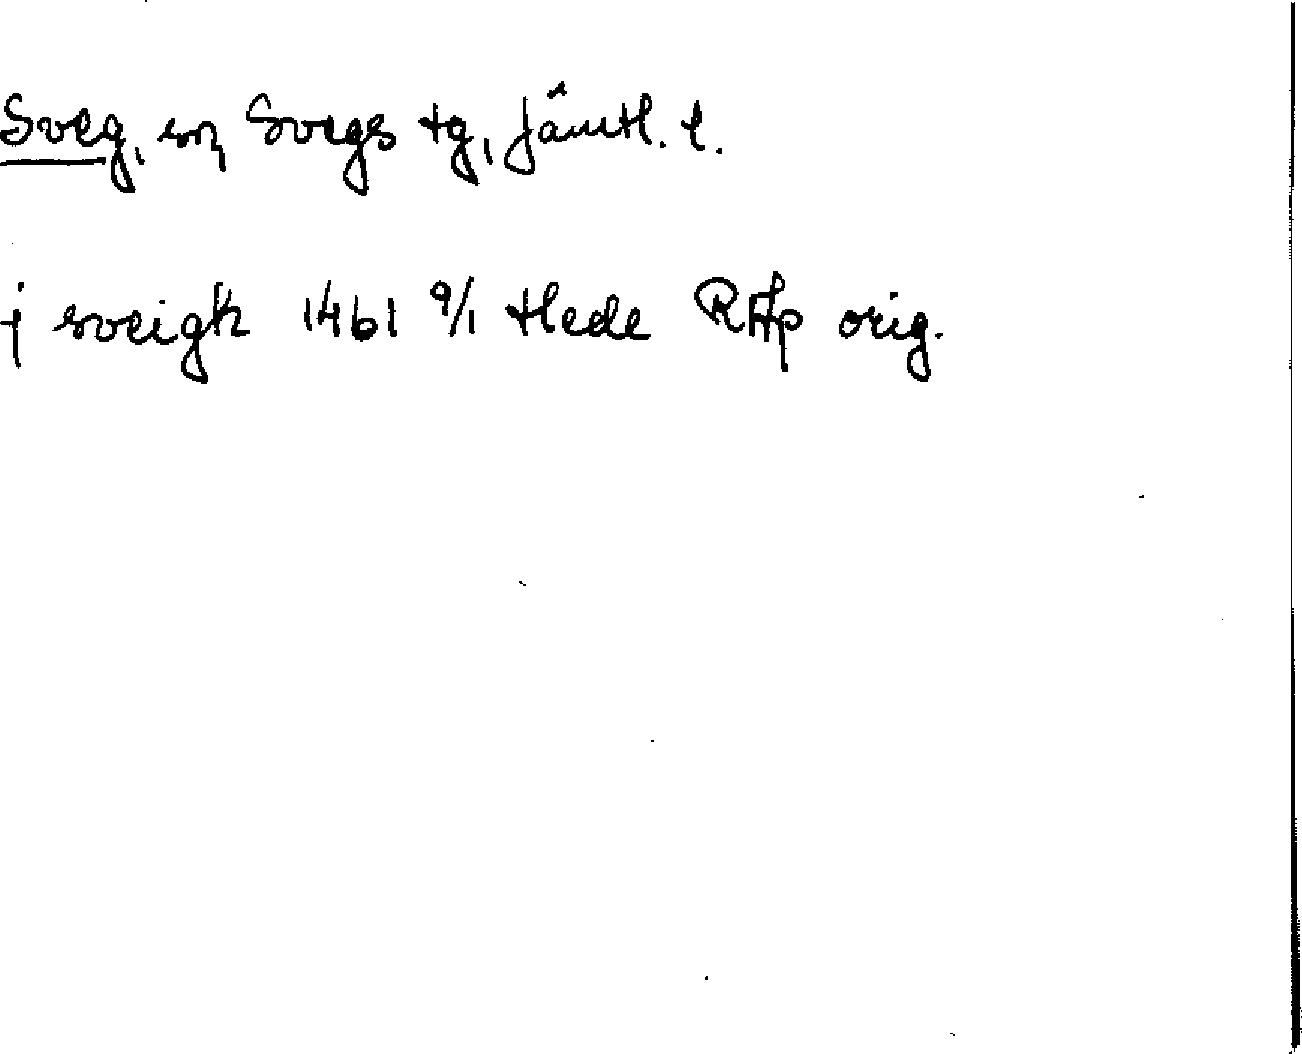 Sveg, sn, Svegs tg, Jämtl. l.
j sveigh 1461 9/1 Hede RAp orig.